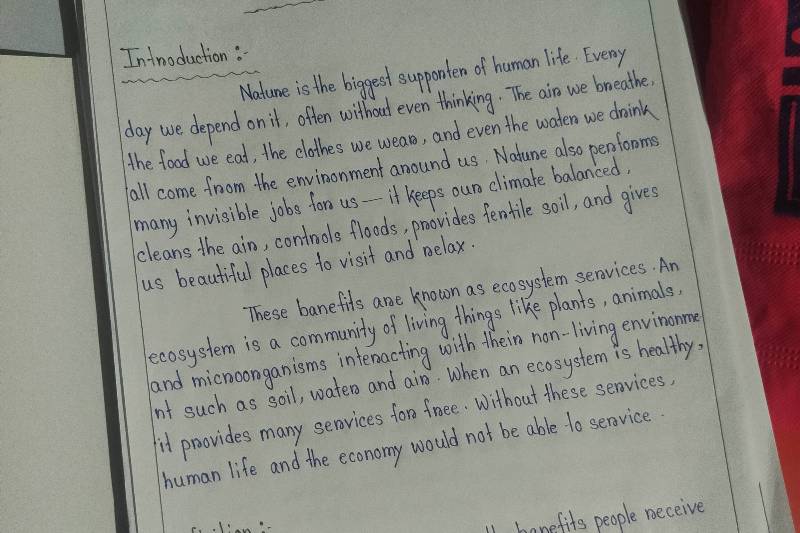 Introduction :-
Nature is the biggest supporter of human life. Every
day we depend on it, often without even thinking. The air we breathe,
the food we eat, the clothes we wear, and even the water we drink
all come from the environment around us. Nature also performs
many invisible jobs for us — it keeps our climate balanced,
cleans the air, controls floods, provides fertile soil, and gives
us beautiful places to visit and relax.
These banefits are known as ecosystem services. An
ecosystem is a community of living things like plants, animals,
and microorganisms interacting with their non-living environme
nt such as soil, water and air. When an ecosystem is healthy,
it provides many services for free. Without these services,
human life and the economy would not be able to service.
benefits people receive